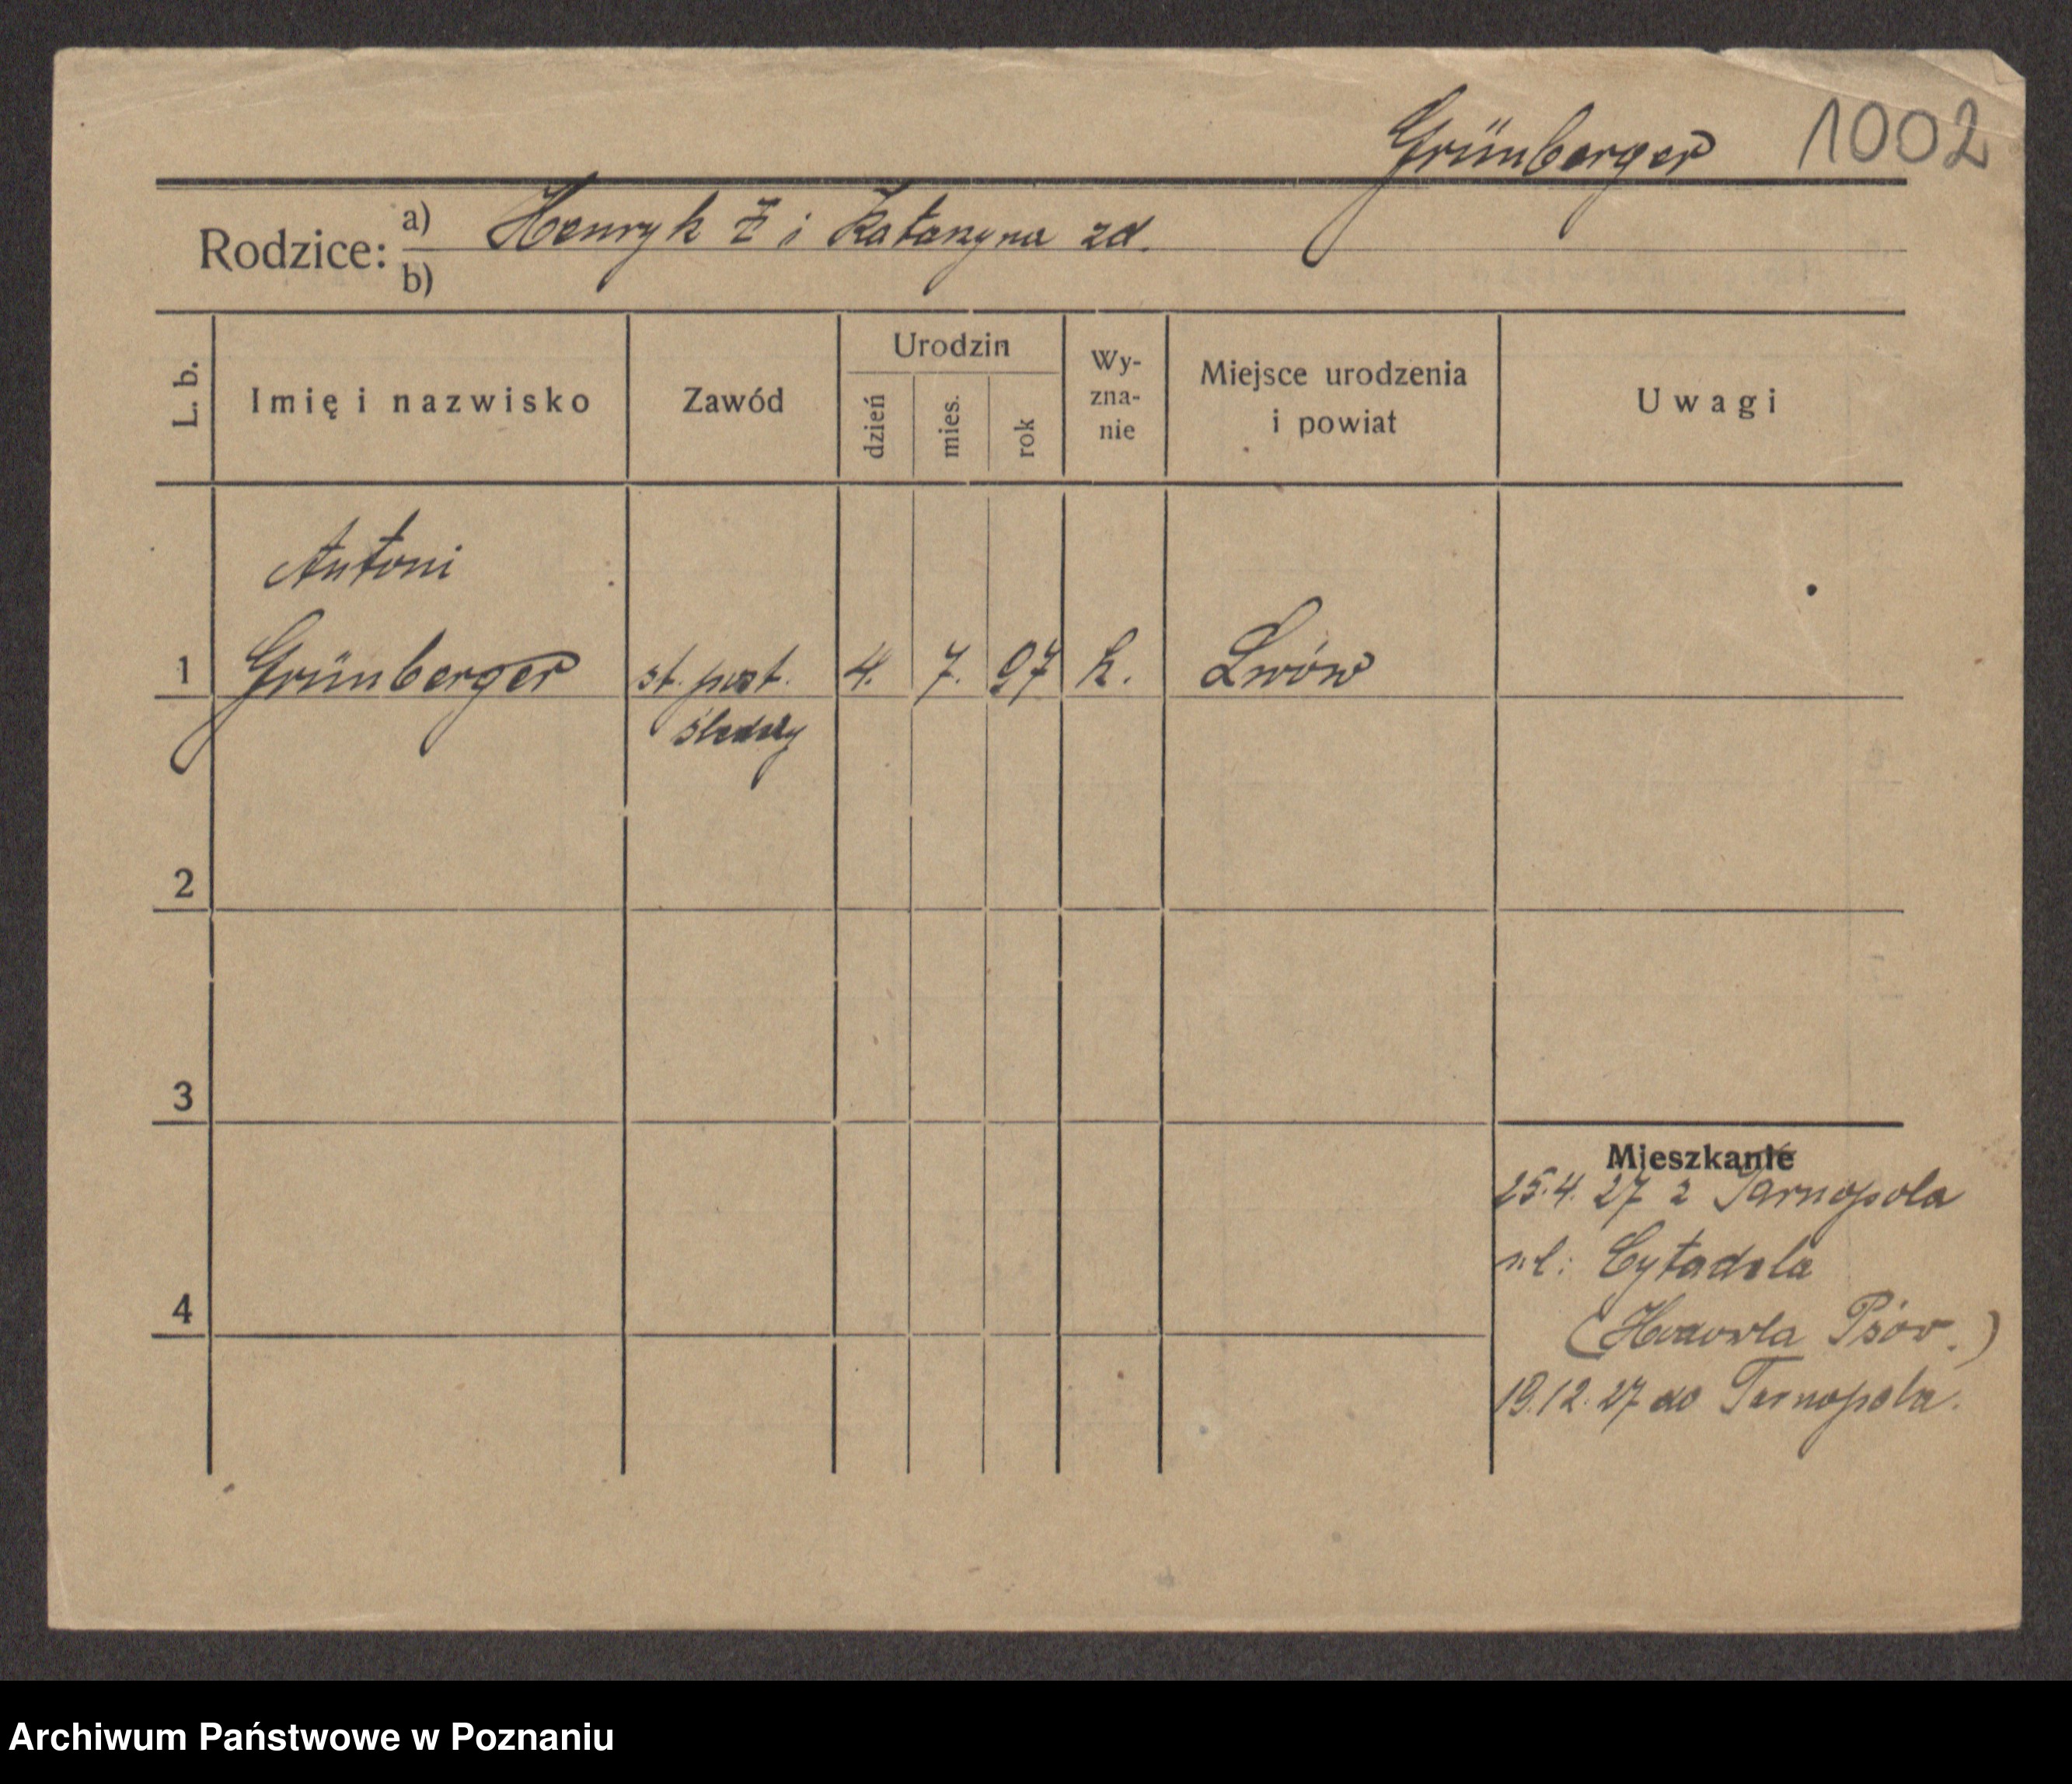 Grünberger 1002
Rodzice: a) Henryk ż i Katarzyna zd.
b)
L. b.
Imię i nazwisko
Zawód
Urodzin
dzień
mies.
rok
Wy-
zna-
nie
Miejsce urodzenia
i powiat
Uwagi
Antoni
1 Grünberger st. post. 4. 7. 97 k. Lwów
śledczy
2
3
Mieszkanie
25.4. 27 z Tarnopola
ul: Cytadela
4
(Hodowla Psów.)
19.12.27 do Tarnopola.
Archiwum Państwowe w Poznaniu